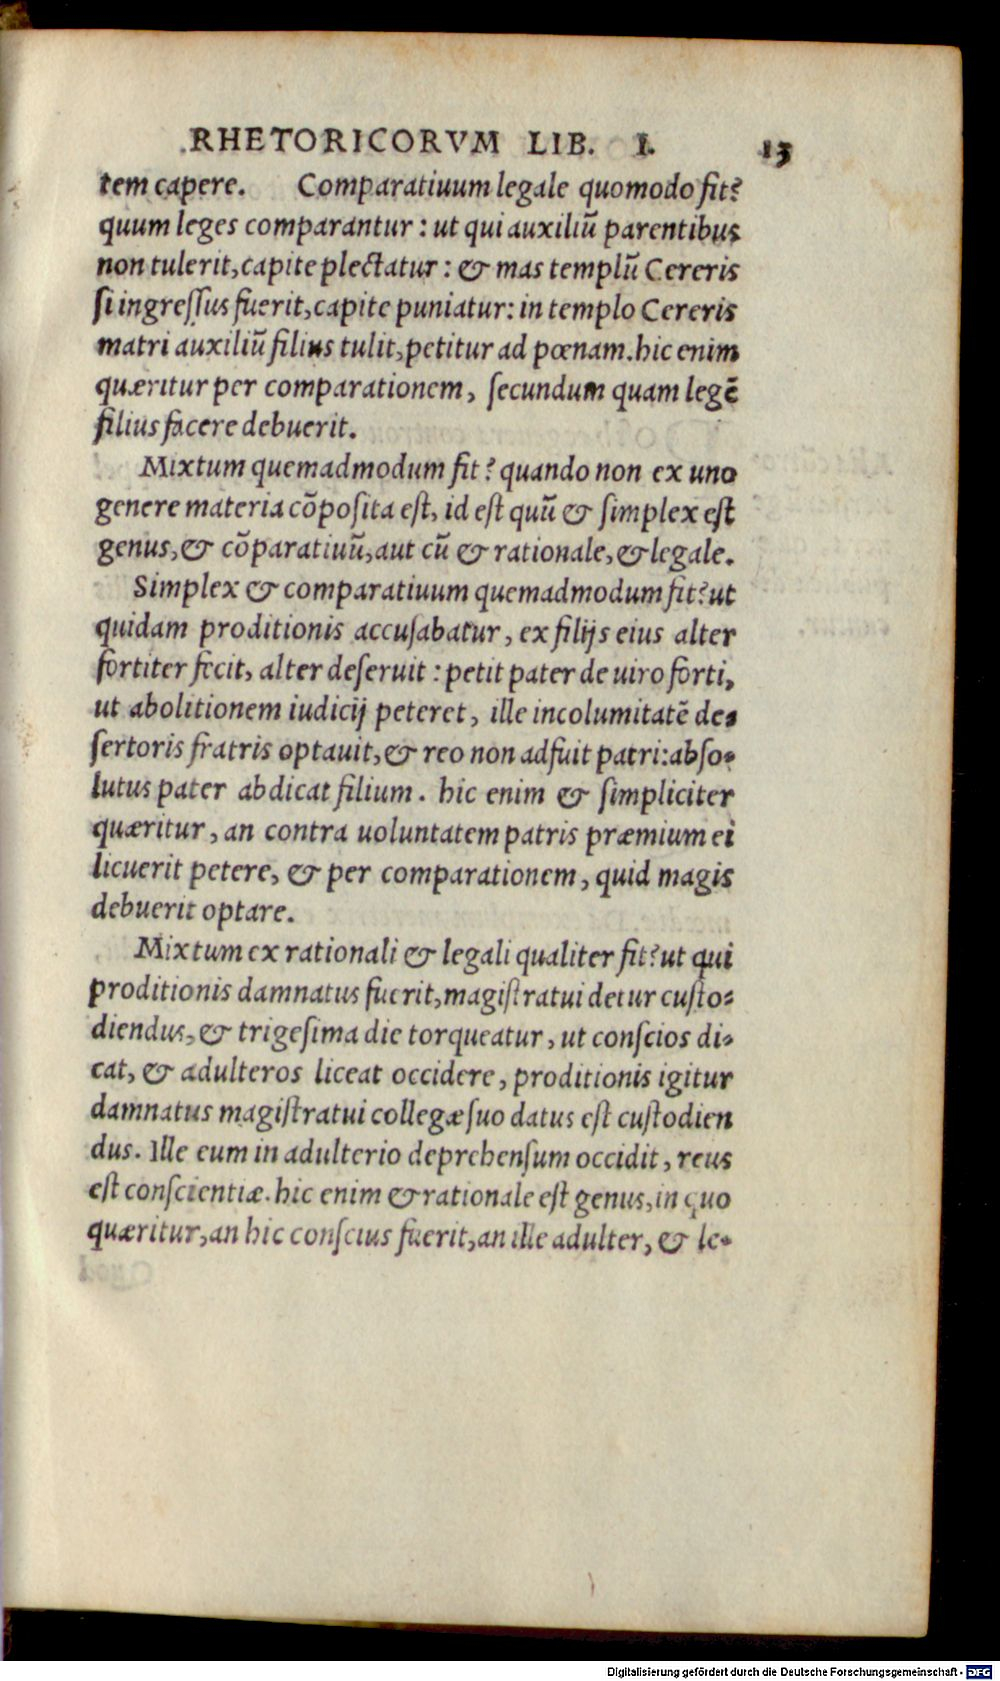 RHETORICORVM LIB. I. 13
tem capere. Comparatiuum legale quomodo fit?
quum leges comparantur: ut qui auxiliū parentibus
non tulerit, capite plectatur: & mas templū Cereris
si ingressus fuerit, capite puniatur: in templo Cereris
matri auxiliū filius tulit, petitur ad pœnam. hic enim
quæritur per comparationem, secundum quam legē
filius facere debuerit.
Mixtum quemadmodum fit? quando non ex uno
genere materia cōposita est, id est quū & simplex est
genus, & cōparatiuū, aut cū & rationale, & legale.
Simplex & comparatiuum quemadmodum fit? ut
quidam proditionis accusabatur, ex filijs eius alter
fortiter fecit, alter deseruit: petit pater de uiro forti,
ut abolitionem iudicij peteret, ille incolumitatē de-
sertoris fratris optauit, & reo non adfuit patri: abso-
lutus pater abdicat filium. hic enim & simpliciter
quæritur, an contra uoluntatem patris præmium ei
licuerit petere, & per comparationem, quid magis
debuerit optare.
Mixtum ex rationali & legali qualiter fit? ut qui
proditionis damnatus fuerit, magistratui detur custo-
diendus, & trigesima die torqueatur, ut conscios di-
cat, & adulteros liceat occidere, proditionis igitur
damnatus magistratui collegæ suo datus est custodien
dus. Ille eum in adulterio deprehensum occidit, reus
est conscientiæ. hic enim & rationale est genus, in quo
quæritur, an hic conscius fuerit, an ille adulter, & le-
Digitalisierung gefördert durch die Deutsche Forschungsgemeinschaft - DFG